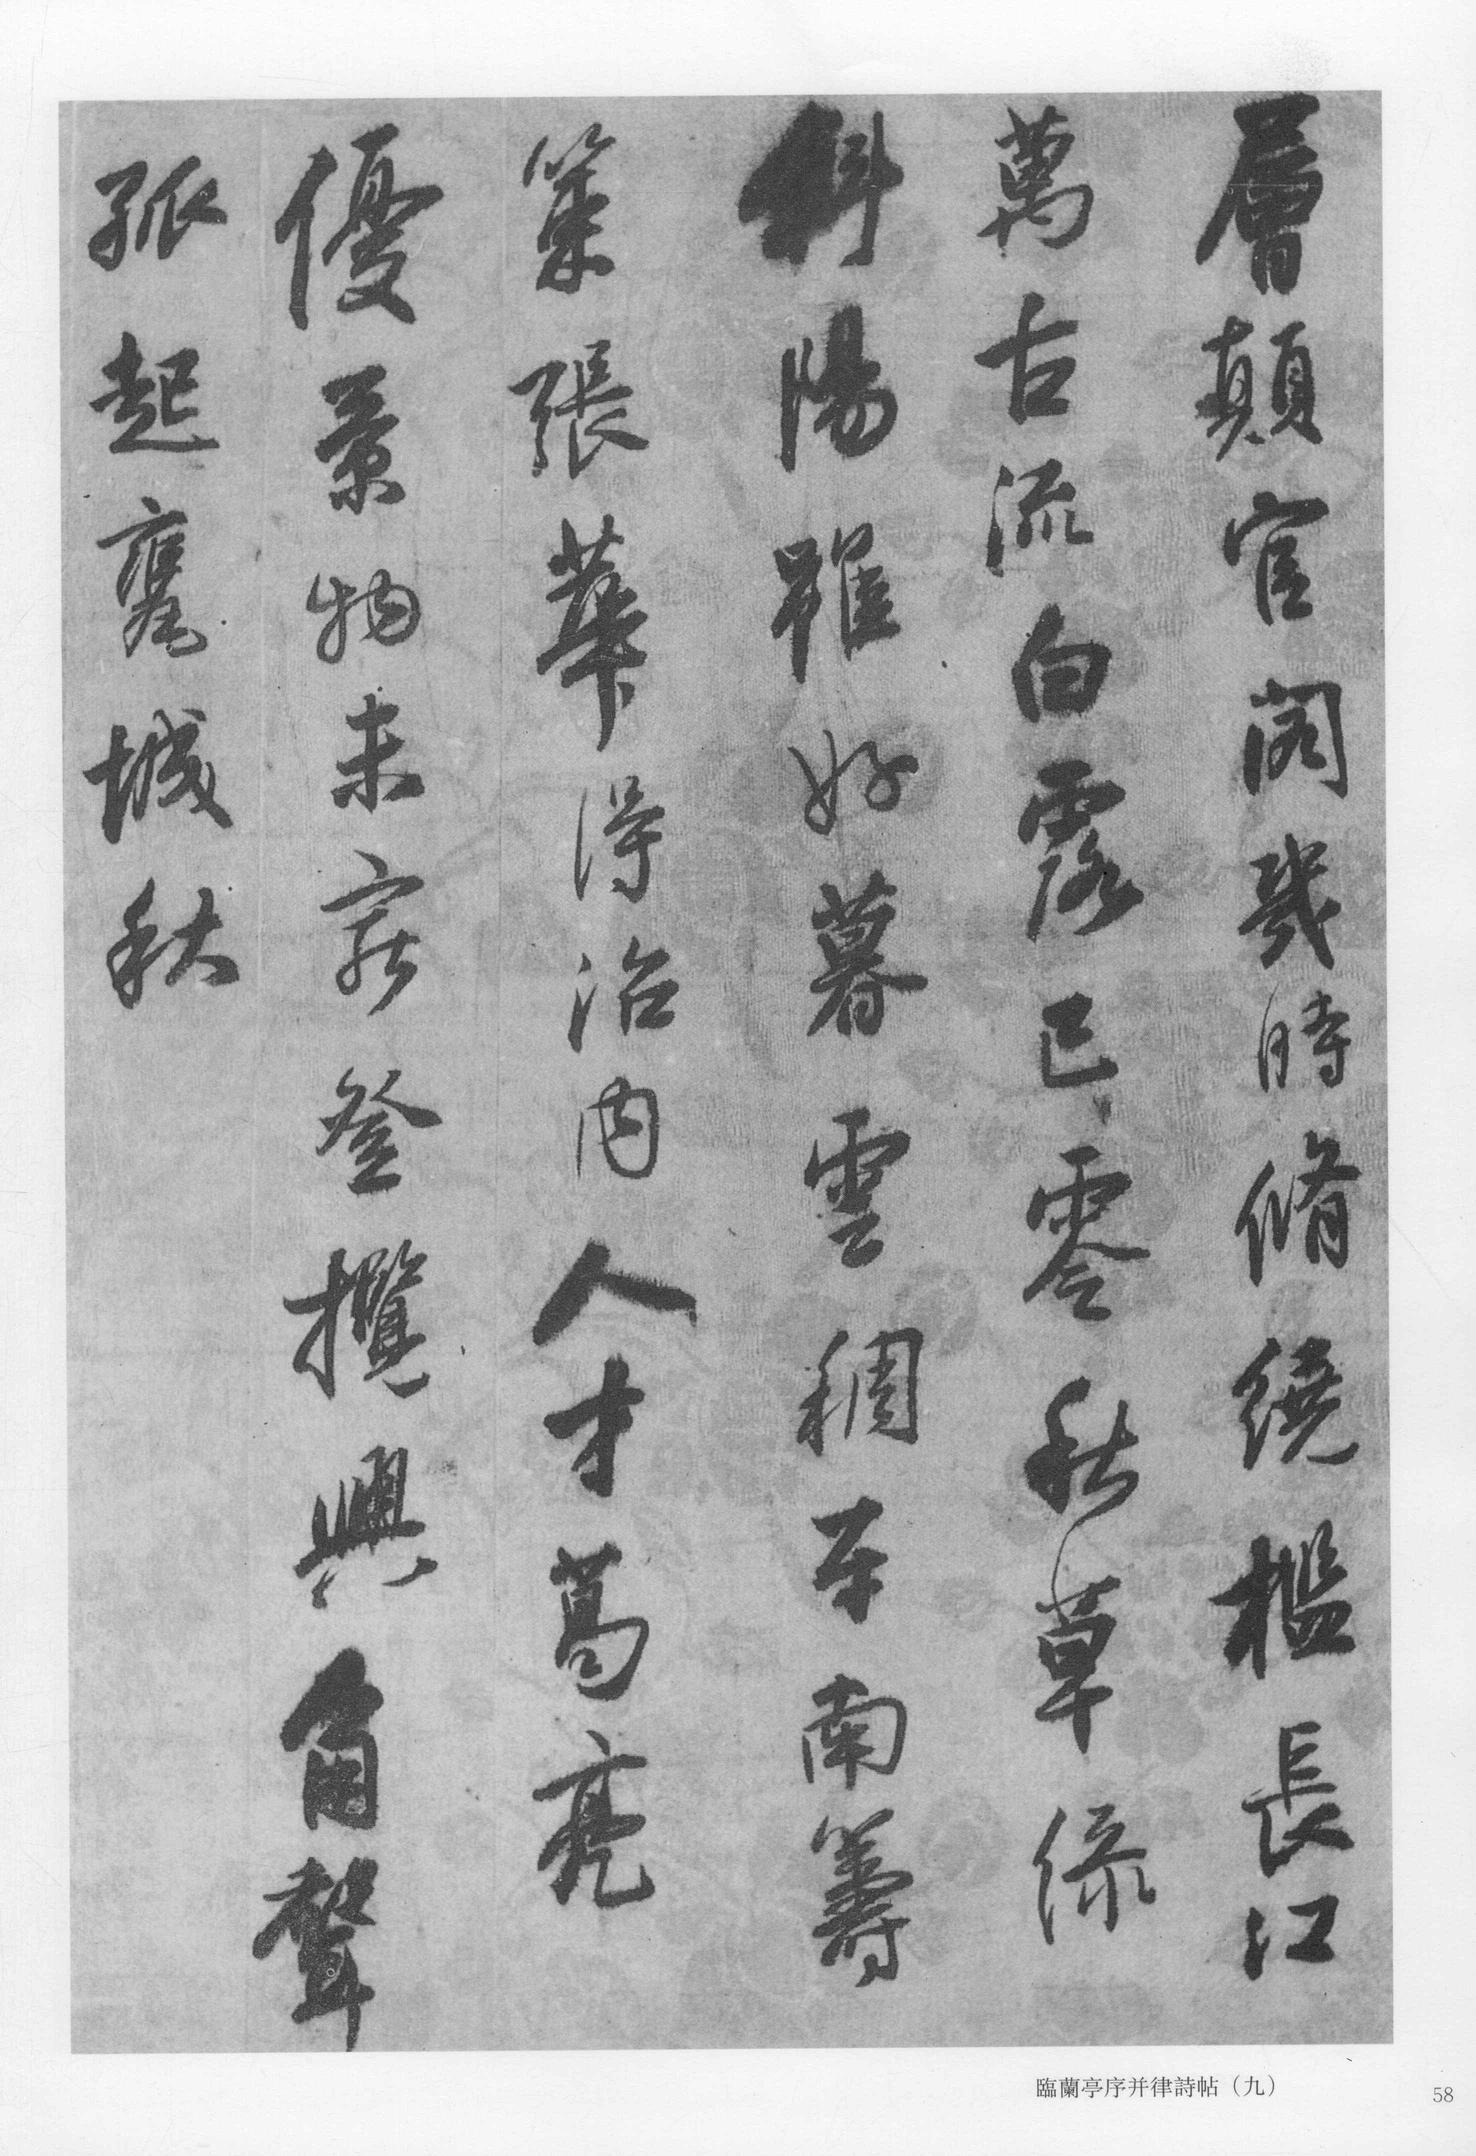 層顛官閣幾時脩繞檻長江
萬古流白露已零秋草緑
斜陽雖好暮雲稠平南籌
策張華得治内人才葛亮
優景物未窮登攬興角聲
孤起甕城秋
臨蘭亭序并律詩帖（九）
58